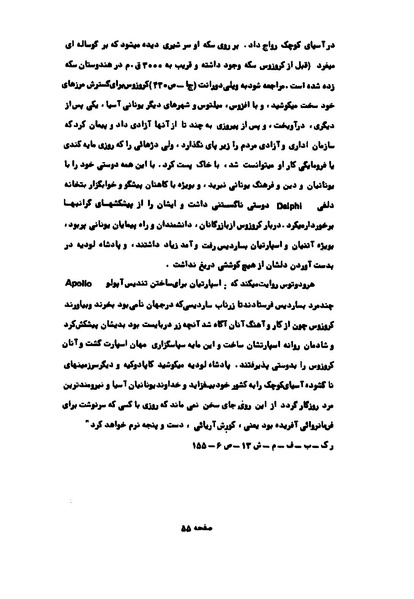 در آسیای کوچک رواج داد . بر روی سکه او سر شیری دیده میشود که بر گوساله ای
میغرد (قبل از کروزوس سکه وجود داشته و قریب به ۳۰۰۰ ق.م در هندوستان سکه
زده شده است . مراجعه شود به ویلی دورانت (ج۱ – ص ۴۳۰) کروزوس برای گسترش مرزهای
خود سخت میکوشید ، و با افزوس ، میلتوس و شهرهای دیگر یونانی آسیا ، یکی پس از
دیگری ، درآویخت ، و پس از پیروزی به چند تا از آنها آزادی داد و پیمان کرد که
سازمان اداری و آزادی مردم را زیر پای نگذارد ، ولی دژهائی را که روزی مایه کندی
یا فرومایگی کار او میتوانست شد ، با خاک پست کرد . با این همه دوستی خود را با
یونانیان و دین و فرهنگ یونانی نبرید ، و بویژه با کاهنان پیشگو و خوابگزار بتخانه
دلفی Dalphi دوستی ناگسستنی داشت و ایشان را از پیشکشهای گرانبها
برخوردار میکرد . دربار کروزوس از بازرگانان ، دانشمندان و راه پیمایان یونانی پر بود ،
بویژه آتنیان و اسپارتیان بساردیس رفت و آمد زیاد داشتند ، و پادشاه لودیه در
بدست آوردن دلشان از هیچ کوششی دریغ نداشت .
هرودوتوس روایت میکند که : اسپارتیان برای ساختن تندیس آپولو Apollo
چند مرد بساردیس فرستادند تا زر ناب ساردیسی که در جهان نامی بود بخرند و بیاورند
کروزوس چون از کار و آهنگ آنان آگاه شد آنچه زر دربایست بود بدیشان پیشکش کرد
و شادمان روانه اسپارتشان ساخت و این مایه سپاسگزاری مهان اسپارت گشت و آنان
کروزوس را بدوستی پذیرفتند . پادشاه لودیه میکوشید کاپادوکیه و دیگر سرزمینهای
نا گشوده آسیای کوچک را به کشور خود بیفزاید و خداوند یونانیان آسیا و نیرومندترین
مرد روزگار گردد از این روی جای سخن نمی ماند که روزی با کسی که سرنوشت برای
فرمانروائی آفریده بود یعنی ، کورش آریائی ، دست و پنجه نرم خواهد کرد "
ر ک – ب – ف – م – ش ۱۳ – ص ۶ – ۱۵۵
صفحه ۵۵